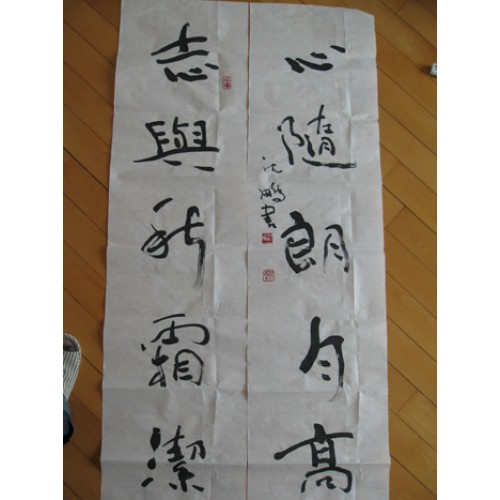 心隨朗月高
志與秋霜潔
沈鵬書